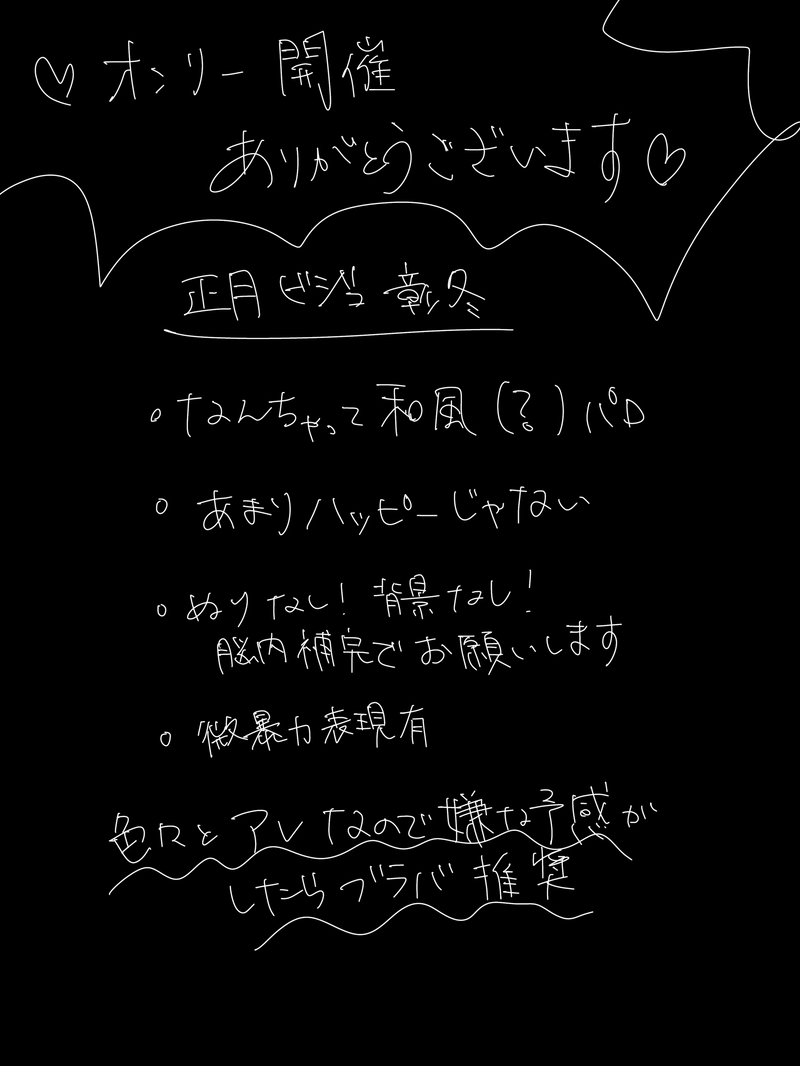 ♡オンリー開催
ありがとうございます♡
正月ビジュ彰冬
。なんちゃって和風(?)パロ
。あまりハッピーじゃない
。ぬりなし!背景なし!
脳内補完でお願いします
。微暴力表現有
色々とアレなので嫌な予感が
したらブラバ推奨